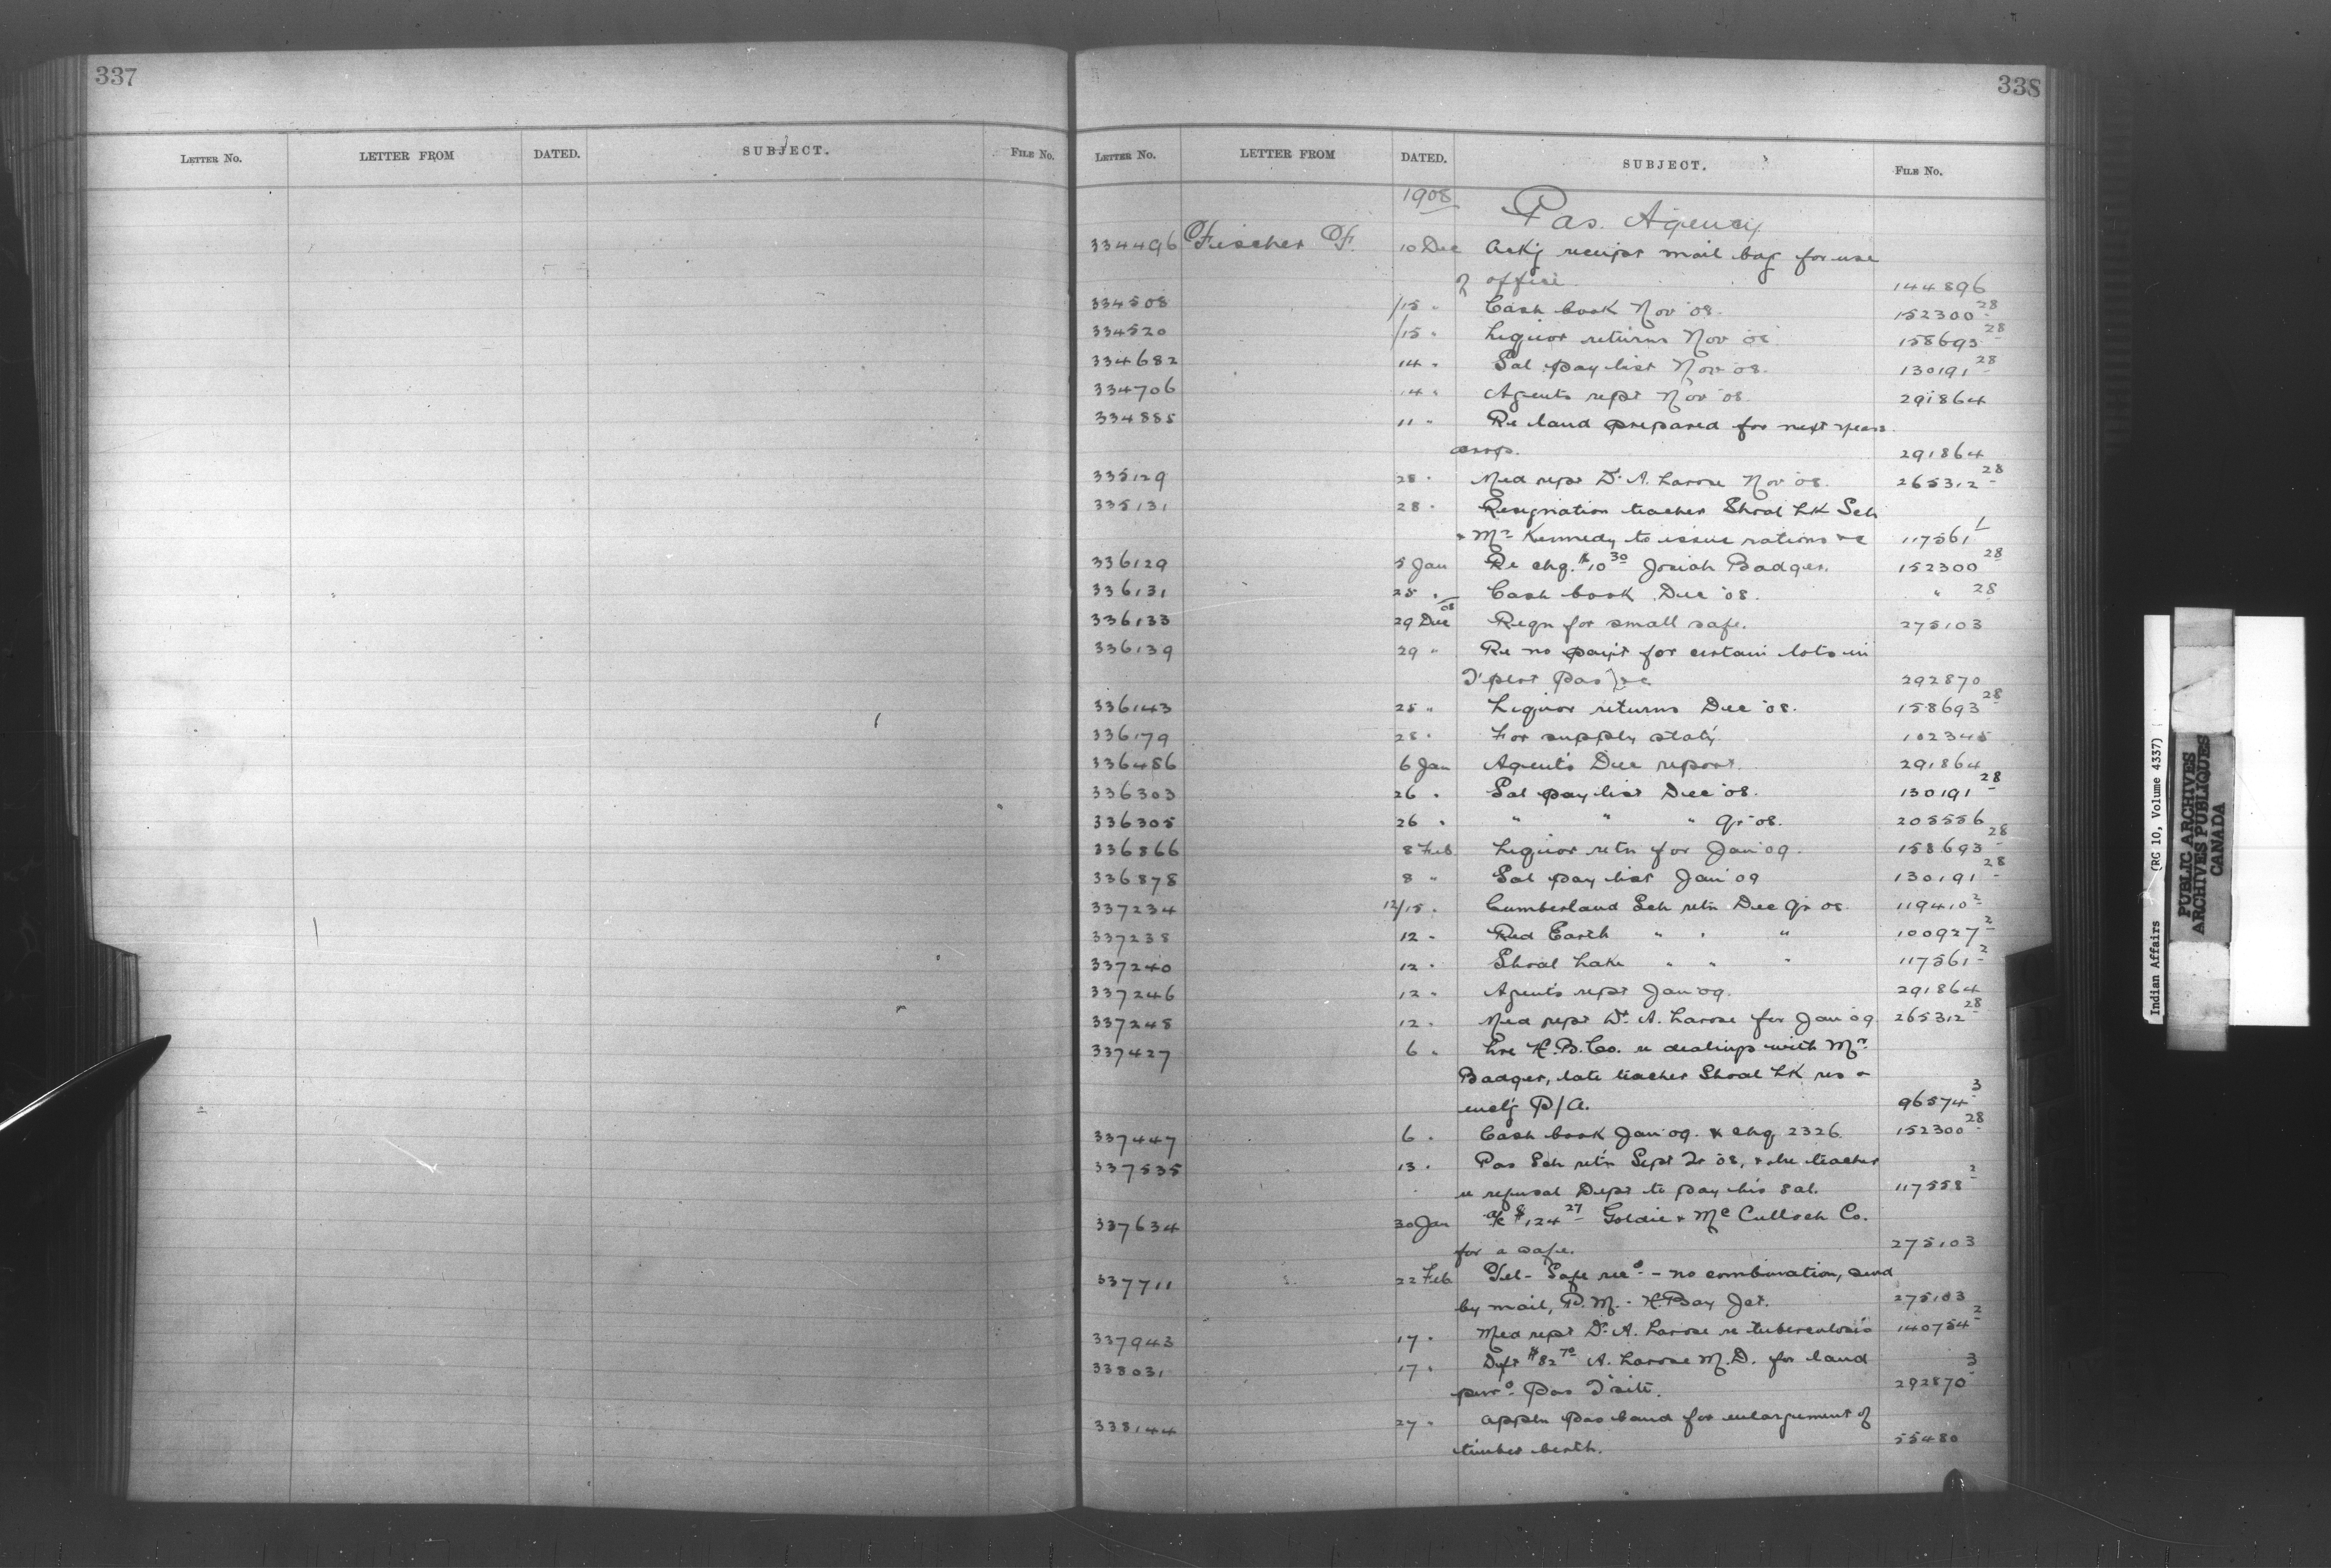 337
LETTER NO. LETTER FROM DATED. SUBJECT. FILE NO.
338
LETTER NO. LETTER FROM DATED. SUBJECT. FILE NO.
1908 Pas. Agency
334496 Fischer F. 10 Dec Ackg receipt mail bag for use
of office 144896
334508 /15 " Cash book Nov '08. 152300 28
334520 /15 " Liquor returns Nov 08 158693 28
334682 14 " Sal pay list Nov 08. 130191 28
334706 14 " Agents rept Nov '08 291864
334885 11 " Re land prepared for next years
crops. 291864
335129 28 " Med rept Dr. A. Larose Nov '08. 265312 28
335131 28 " Resignation teacher Shoal Lk Sch
& Mr Kennedy to issue rations &c 117561 1
336129 5 Jan Re chq. $10 30 Josiah Badger. 152300 28
336131 25 " Cash book Dec '08. " 28
336133 29 Dec 08 Reqn for small safe. 275103
336139 29 " Re no pay't for certain lots in
T'plot Pas &c 292870
336143 25 " Liquor returns Dec '08. 158693 28
336179 28 " For supply stat'y 102345
336486 6 Jan Agent's Dec report. 291864
336303 26 " Sal pay list Dec '08. 130191 28
336305 26 " " " " Qr '08. 205556
336866 8 Feb Liquor retn for Jan '09. 158693 28
336878 8 " Sal pay list Jan '09 130191 28
337234 12/15 " Cumberland Sch retn Dec Qr 08. 119410 2
337238 12 " Red Earth " " " 100927 2
337240 12 " Shoal Lake " " " 117561 2
337246 12 " Agent's rept Jan '09. 291864
337248 12 " Med rept Dr. A. Larose for Jan 09 265312 28
337427 6 " Lre H.B.Co. re dealings with Mr.
Badger, late teacher Shoal Lk res &
encl'g P/A. 96574 3
337447 6 " Cash book Jan '09. & chq 2326. 152300 28
337535 13 " Pas Sch ret'n Sept Qr '08, & lre teacher
re refusal Dept to pay his sal. 117558 2
337634 30 Jan a/c $124 27 Goldie & McCulloch Co.
for a safe. 275103
337711 22 Feb Tel- Safe rec'd - no combination, send
by mail, P.M. - H.Bay Jct. 275103
337943 17 " Med rept Dr. A. Larose re tuberculosis 140754 2
338031 17 " Dft $82 70 A. Larose M.D. for land
purd. Pas T'site. 292870 3
338144 27 " appln Pas band for enlargement of
timber berth. 55480
Indian Affairs (RG 10, Volume 4337)
PUBLIC ARCHIVES
ARCHIVES PUBLIQUES
CANADA